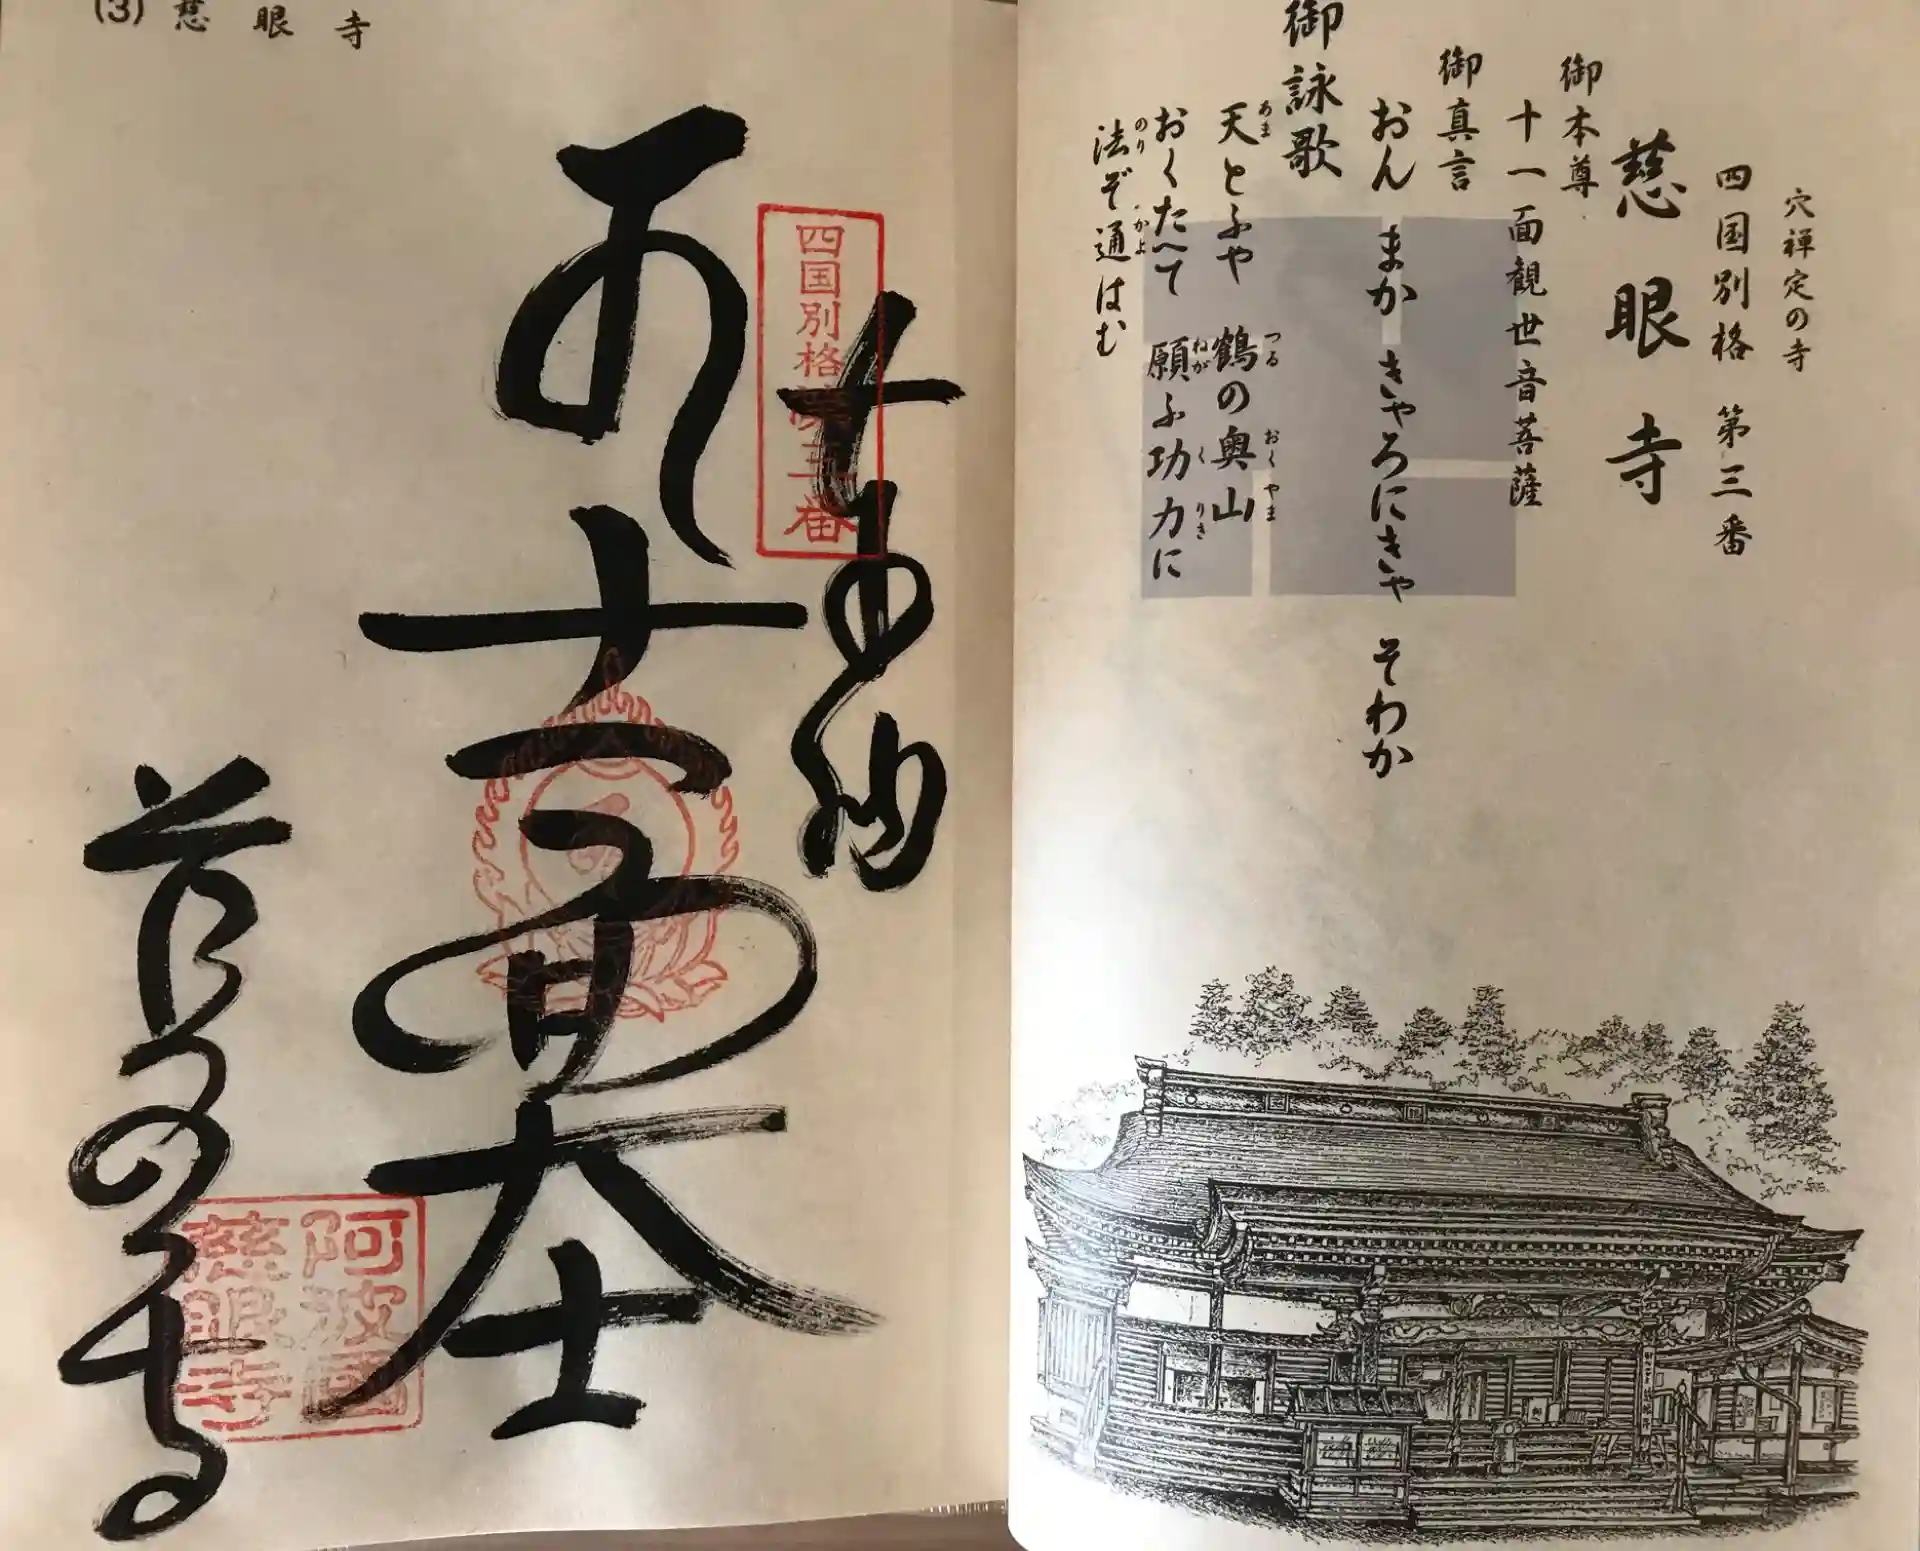 穴禅定の寺
四国別格 第三番
慈眼寺
御本尊
十一面観世音菩薩
御真言
おん まか きゃろにきゃ そわか
御詠歌
天とふや 鶴の奥山
あま つる おくやま
おくたへて 願ふ功力に
ねが くりき
法ぞ通はむ
のり かよ
(3) 慈眼寺
四国別格第三番
奉納
十一面大士
慈眼寺
阿波國
慈眼寺